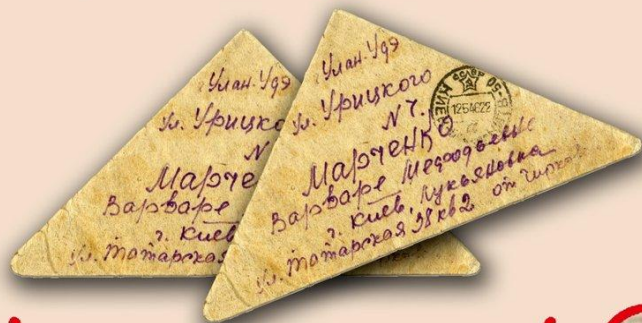 Улан-Удэ
Ул. Урицко
Марче
Варваре
г. Киев
ул. Татарская
Улан-Удэ
Ул. Урицкого
N 7.
Марченко
Варваре Мефодьевне
г. Киев, Лукьяновка
ул. Татарская 38 кв 2 от
КИЕВ